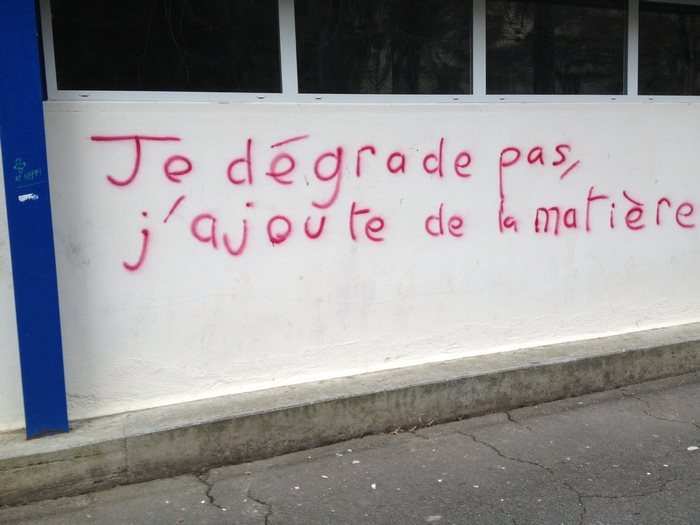 Je dégrade pas,
j'ajoute de la matière